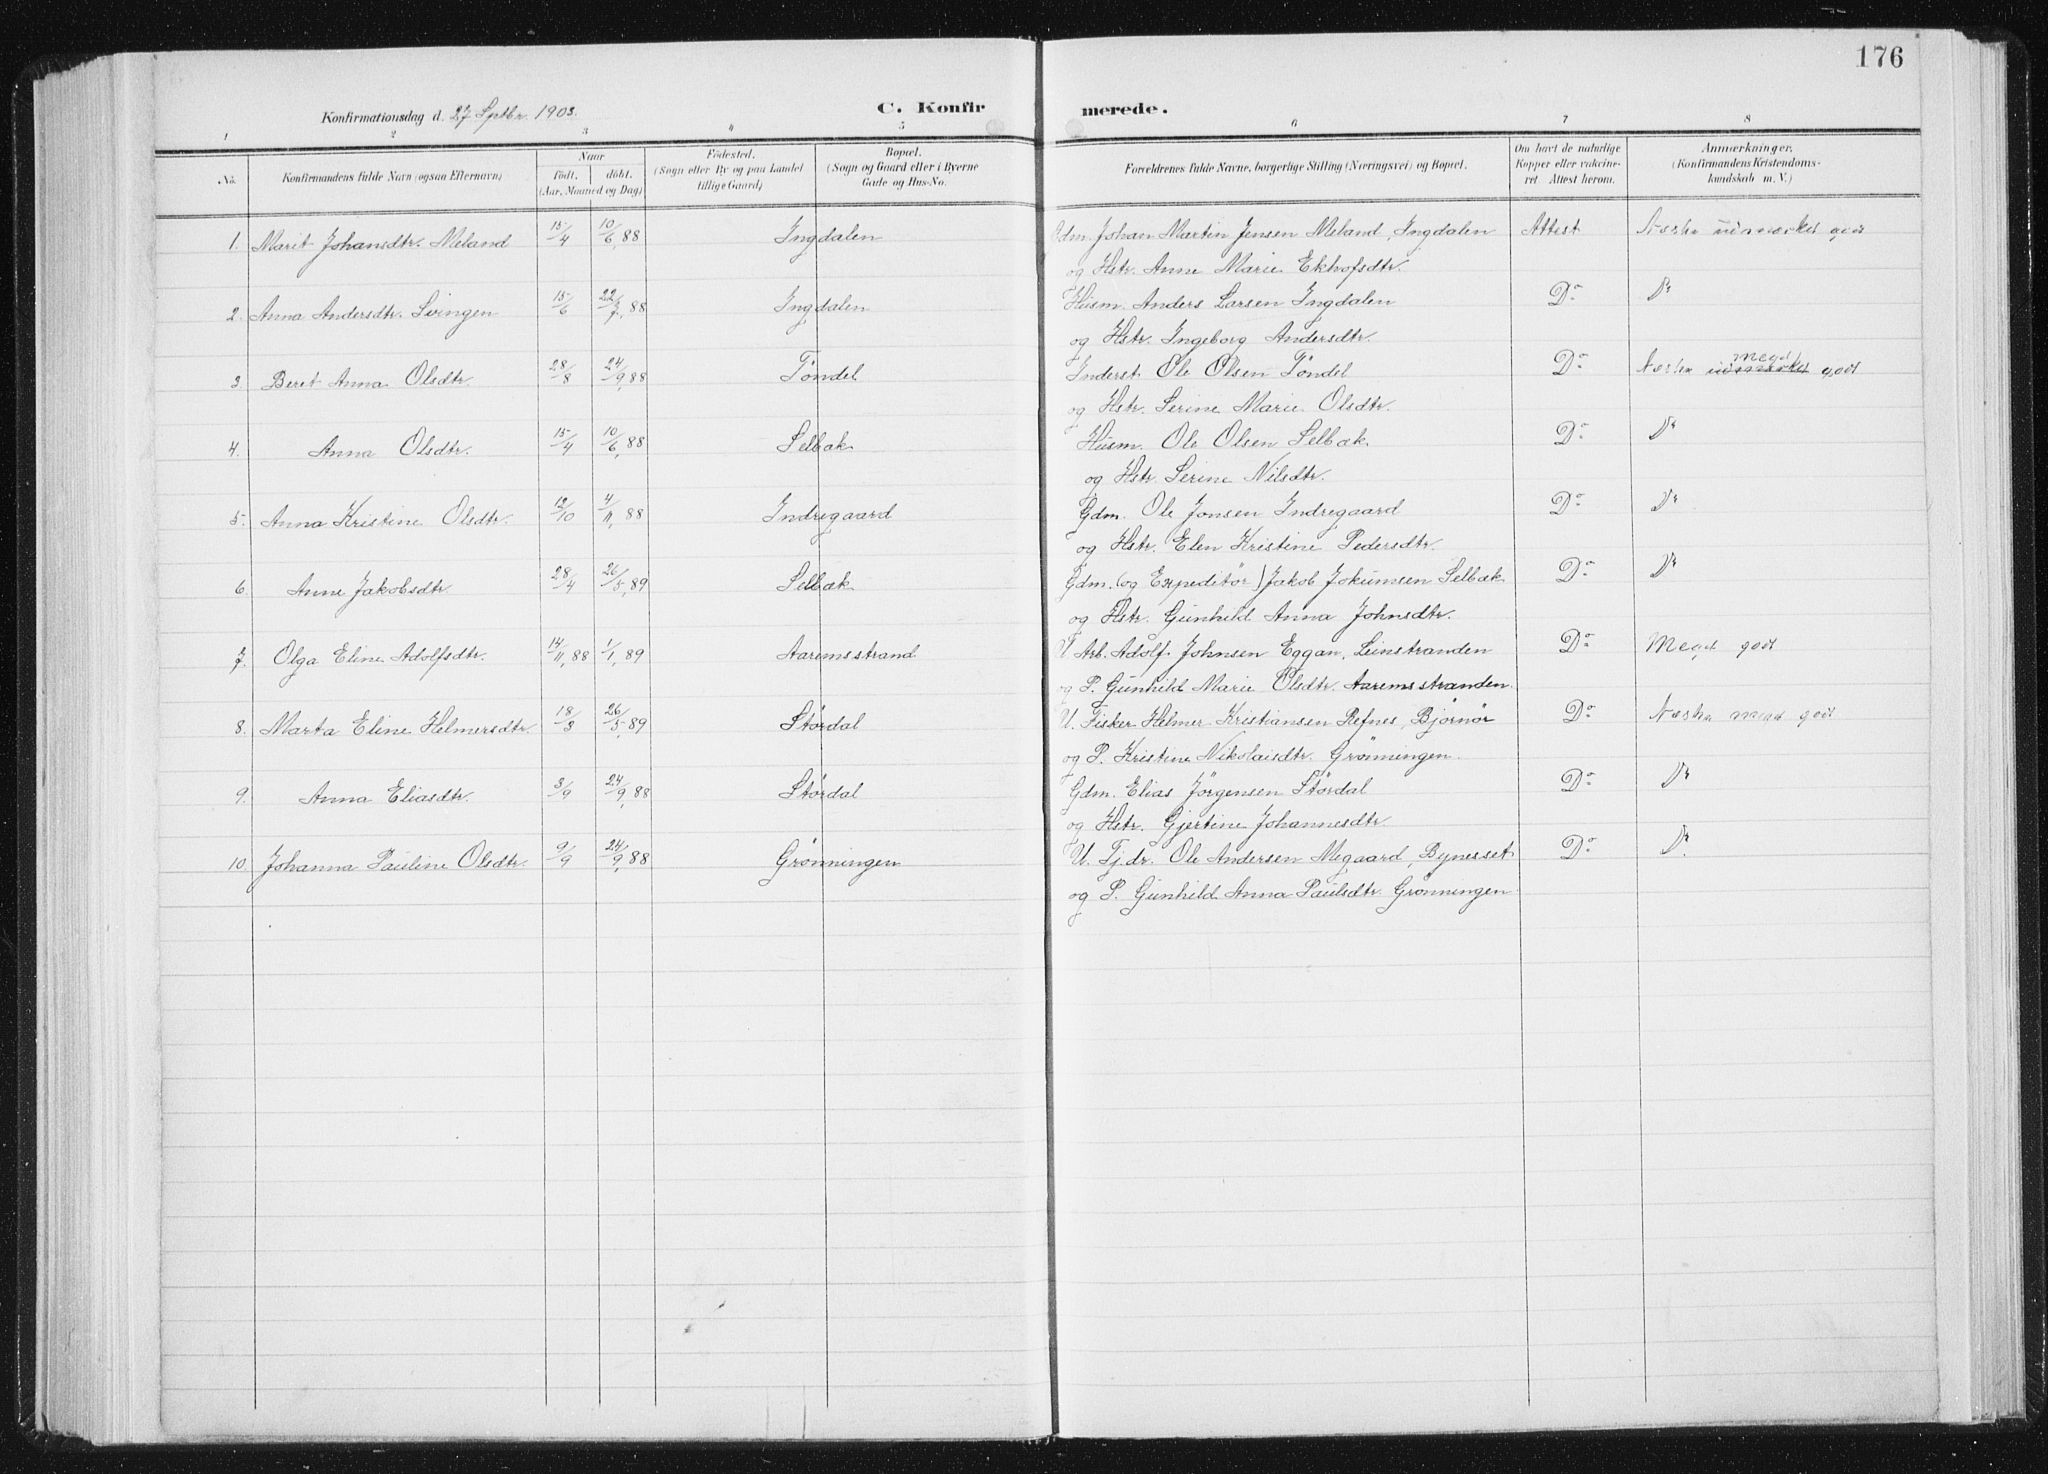 176
Konfirmationsdag d. 27 Septbr. 1903.
C. Konfirmerede.
1 2 3 4 5 6 7 8
No.
Konfirmandens fulde Navn (ogsaa Efternavn)
Naar
født. døbt.
(Aar, Maaned og Dag)
Fødested.
(Sogn eller By og paa Landet
tillige Gaard)
Bopæl.
(Sogn og Gaard eller i Byerne
Gade og Hus-No.
Forældrenes fulde Navne, borgerlige Stilling (Næringsvei) og Bopæl.
Om havt de naturlige
Kopper eller vakcine-
ret Attest herom.
Anmærkninger.
(Konfirmandens Kristendoms-
kundskab m. V.)
1. Marit Johansdtr. Meland 15/4 10/6, 88 Ingdalen Gdm. Johan Martin Jensen Meland, Ingdalen Attest Næsten udmærket godt
og Hstr. Anne Marie Ekhofsdtr.
2. Anna Andersdtr. Svingen 15/6 22/7, 88 Ingdalen Husm. Anders Larsen Ingdalen Do Do
og Hstr. Ingeborg Andersdtr.
3. Beret Anna Olsdtr. 28/8 24/9, 88 Tøndel Inderst Ole Olsen Tøndel Do Næsten udmærket meget godt
og Hstr. Serine Marie Olsdtr.
4. Anna Olsdtr. 15/4 10/6, 88 Selbæk Husm. Ole Olsen Selbæk Do Do
og Hstr. Serine Nilsdtr.
5. Anna Kristine Olsdtr. 12/10 4/11, 88 Indregaard Gdm. Ole Jonsen Indregaard Do Do
og Hstr. Elen Kristine Pedersdtr.
6 Anne Jakobsdtr. 28/4 26/5, 89 Selbæk Gdm. (og Expeditør) Jakob Jokumsen Selbæk Do Do
og Hstr. Gunhild Anna Johnsdtr.
7. Olga Eline Adolfsdtr. 14/11, 88 1/1, 89 Aaremsstrand U. Arb. Adolf Johnsen Eggan, Leinstranden Do Meget godt
og P. Gunhild Marie Olsdtr. Aaremsstranden
8. Marta Eline Helmersdtr. 18/3 26/5, 89 Størdal U. Fisker Helmer Kristiansen Refnes, Bjørnør Do Næsten meget godt
og P. Kristine Nikolaisdtr. Grønningen.
9. Anna Eliasdtr. 3/9 24/9, 88 Størdal Gdm. Elias Jørgensen Størdal Do Do
og Hstr. Gjertine Johannesdtr.
10. Johanna Pauline Olsdtr. 9/9 24/9, 88 Grønningen U. Tj.dr. Ole Andersen Megaard, Bynesset Do Do
og P. Gunhild Anna Paulsdtr. Grønningen